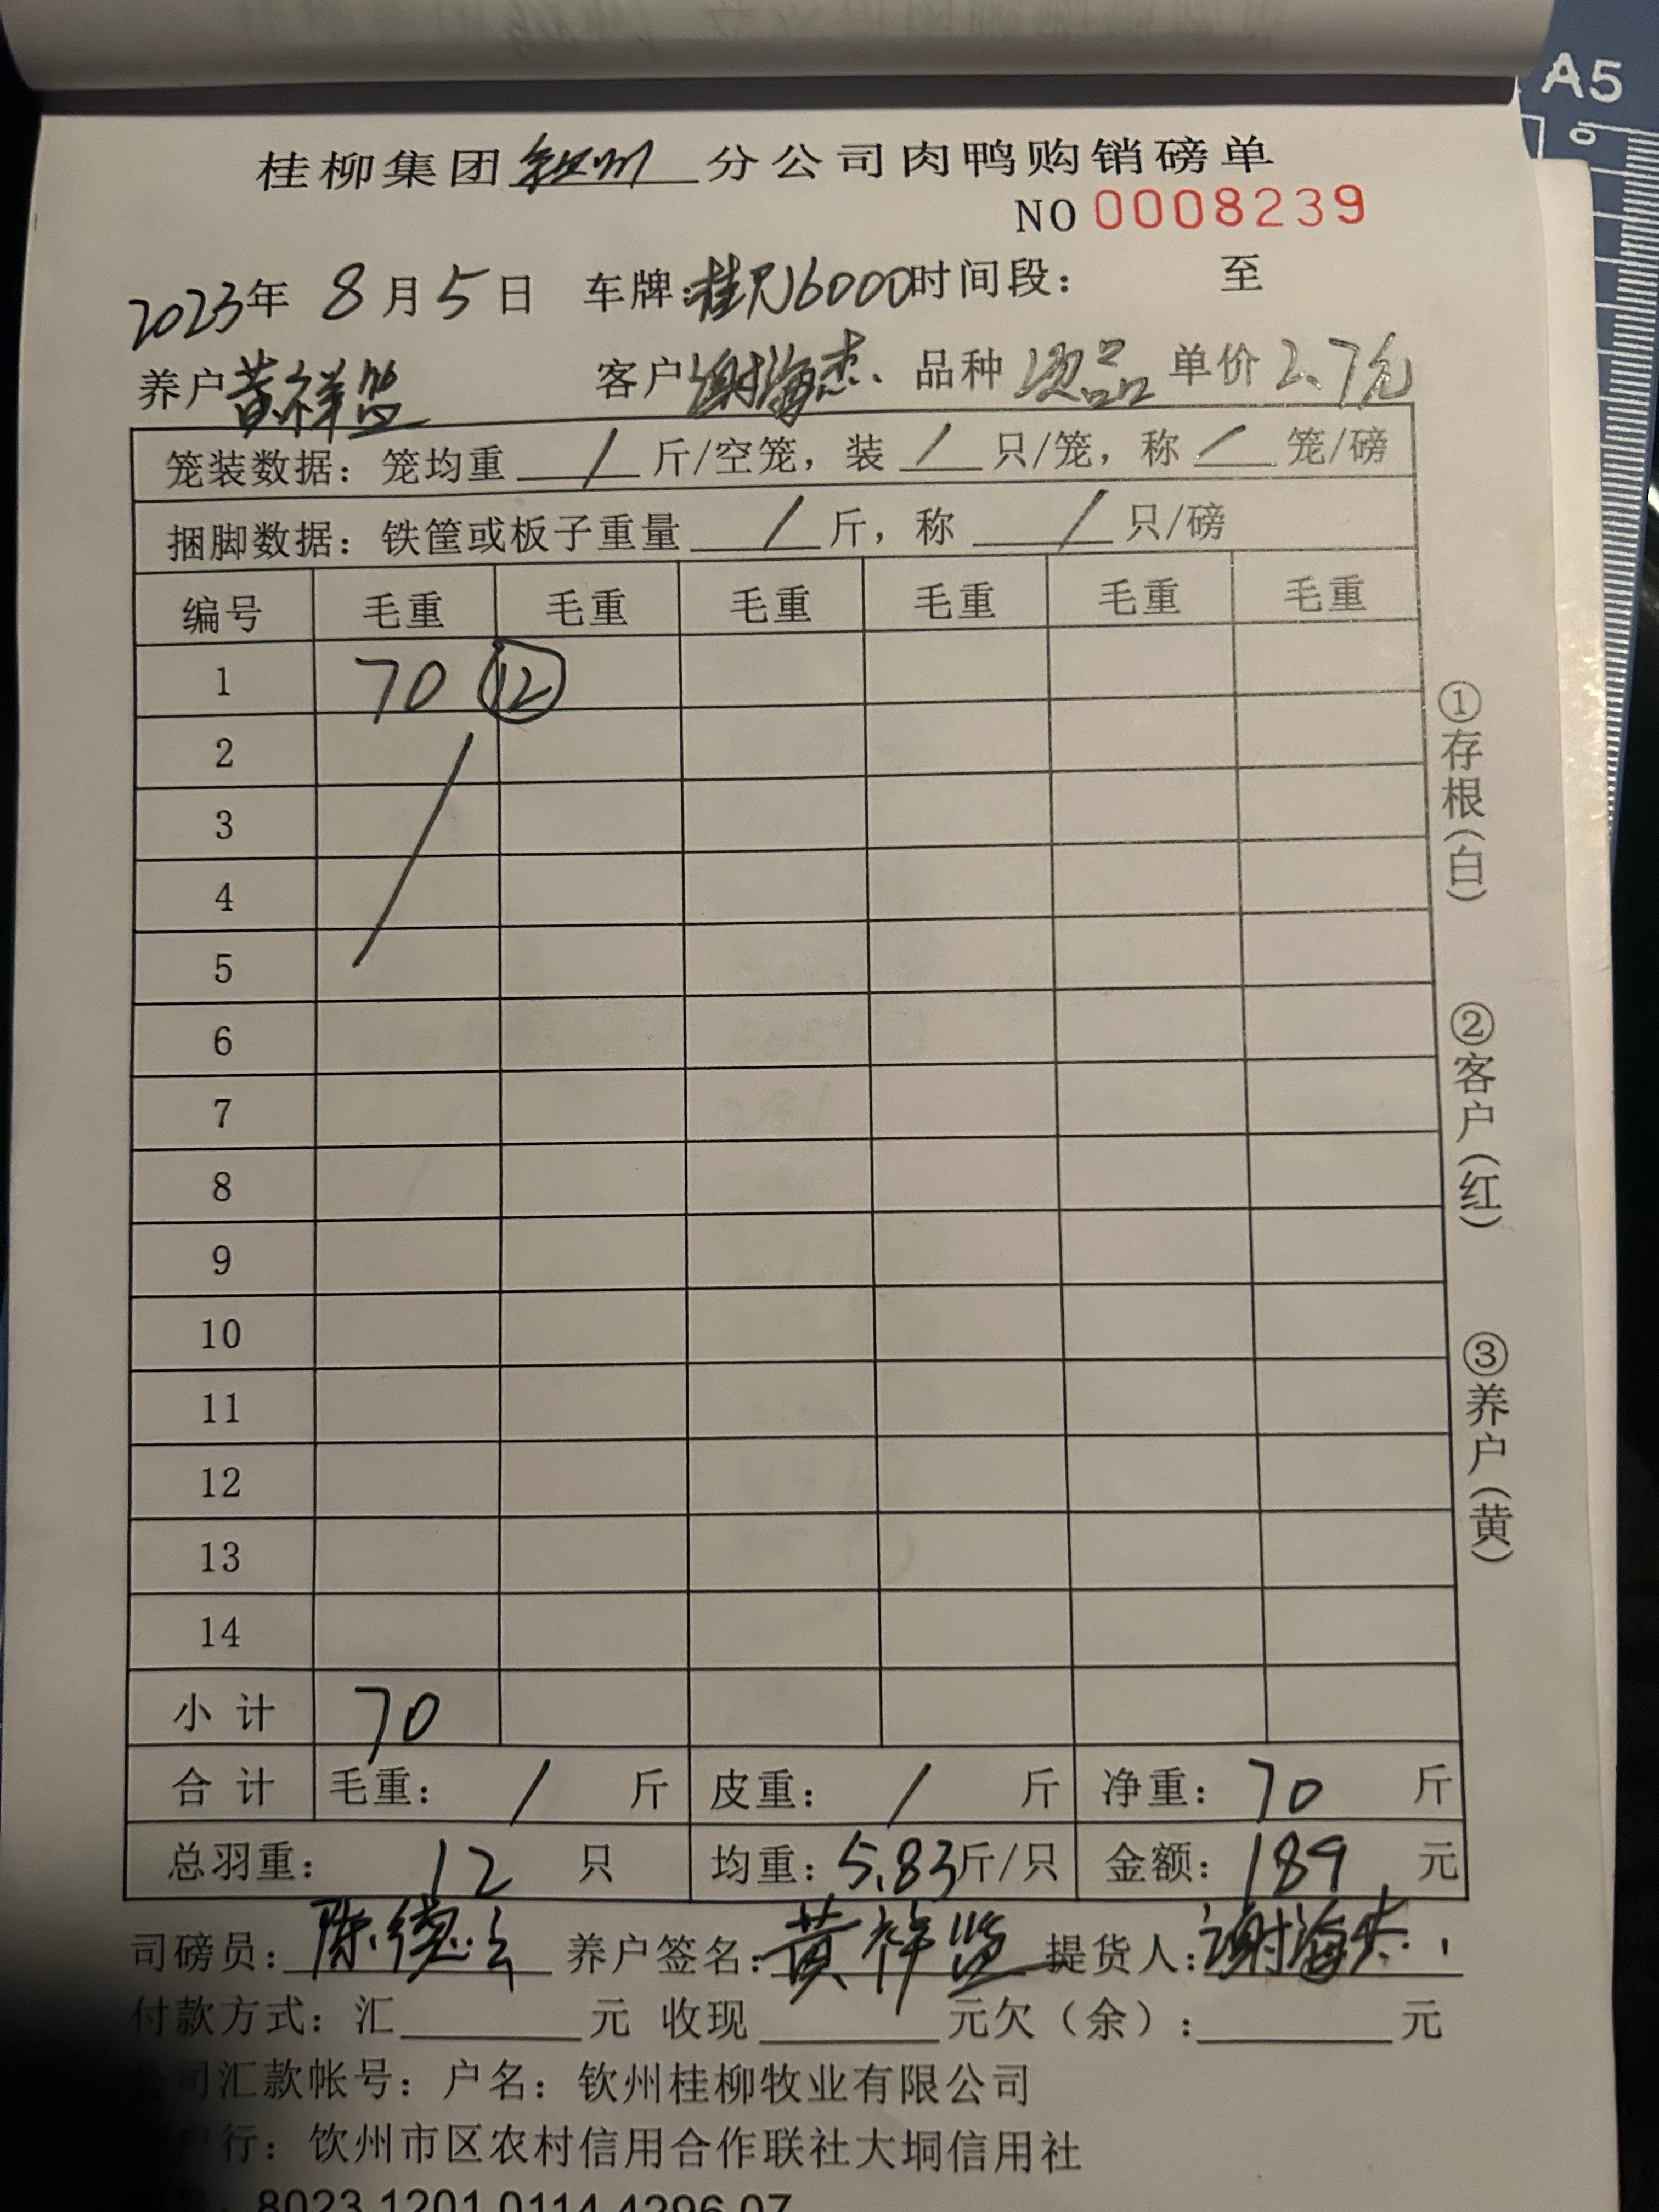 A5
桂柳集团钦州分公司肉鸭购销磅单
NO 0008239
2023年 8月5日 车牌: 时间段： 至
养户黄祥 客户谢海杰 品种次品 单价2.7元
笼装数据：笼均重 / 斤/空笼，装 / 只/笼，称 / 笼/磅
捆脚数据：铁筐或板子重量 / 斤，称 / 只/磅
编号 毛重 毛重 毛重 毛重 毛重 毛重
1 70 ⑫
2
3
4
5
6
7
8
9
10
11
12
13
14
小计 70
合计 毛重： / 斤 皮重： / 斤 净重：70 斤
总羽重： 12 只 均重：5.83斤/只 金额：189 元
司磅员：陈德 养户签名：黄祥 提货人：谢海杰
付款方式：汇 元 收现 元欠（余）： 元
公司汇款帐号：户名：钦州桂柳牧业有限公司
户行：钦州市区农村信用合作联社大垌信用社
8023 1201 0114 4296 07
①存根（白）
②客户（红）
③养户（黄）